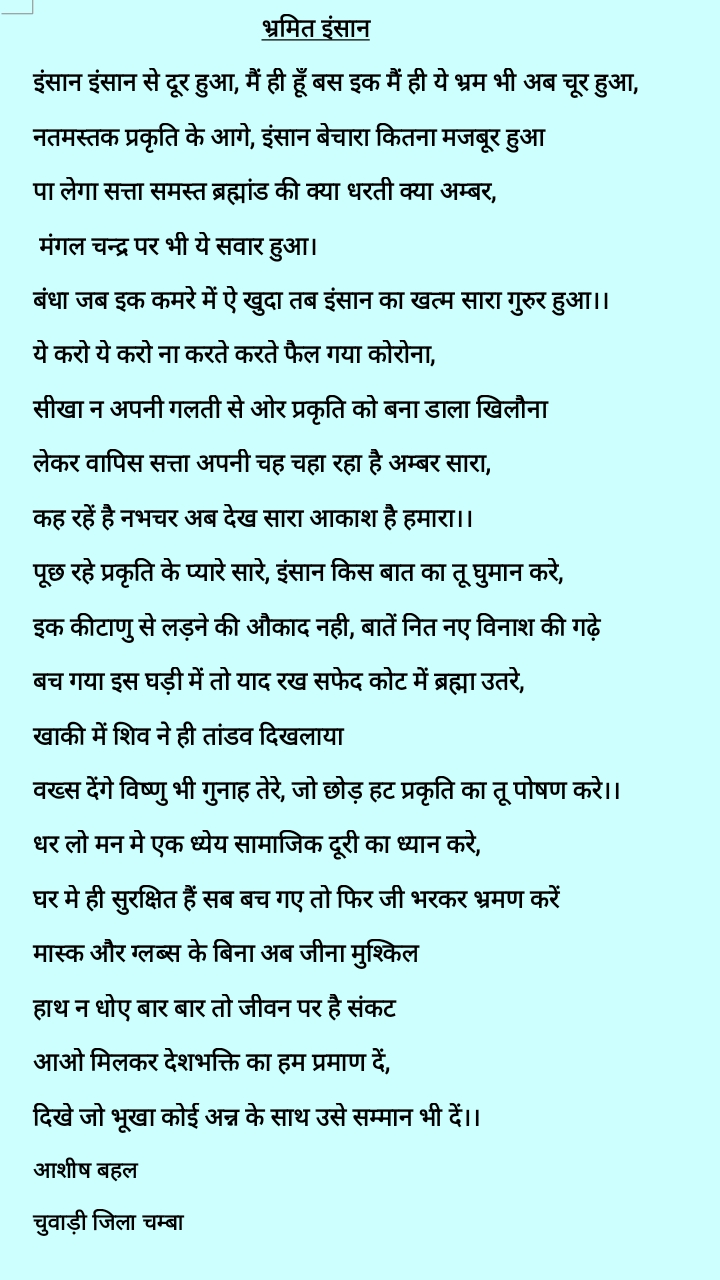 भ्रमित इंसान
इंसान इंसान से दूर हुआ, मैं ही हूँ बस इक मैं ही ये भ्रम भी अब चूर हुआ,
नतमस्तक प्रकृति के आगे, इंसान बेचारा कितना मजबूर हुआ
पा लेगा सत्ता समस्त ब्रह्मांड की क्या धरती क्या अम्बर,
मंगल चन्द्र पर भी ये सवार हुआ।
बंधा जब इक कमरे में ऐ खुदा तब इंसान का खत्म सारा गुरुर हुआ।।
ये करो ये करो ना करते करते फैल गया कोरोना,
सीखा न अपनी गलती से ओर प्रकृति को बना डाला खिलौना
लेकर वापिस सत्ता अपनी चह चहा रहा है अम्बर सारा,
कह रहें है नभचर अब देख सारा आकाश है हमारा।।
पूछ रहे प्रकृति के प्यारे सारे, इंसान किस बात का तू घुमान करे,
इक कीटाणु से लड़ने की औकाद नही, बातें नित नए विनाश की गढ़े
बच गया इस घड़ी में तो याद रख सफेद कोट में ब्रह्मा उतरे,
खाकी में शिव ने ही तांडव दिखलाया
वख्स देंगे विष्णु भी गुनाह तेरे, जो छोड़ हट प्रकृति का तू पोषण करे।।
धर लो मन मे एक ध्येय सामाजिक दूरी का ध्यान करे,
घर मे ही सुरक्षित हैं सब बच गए तो फिर जी भरकर भ्रमण करें
मास्क और ग्लब्स के बिना अब जीना मुश्किल
हाथ न धोए बार बार तो जीवन पर है संकट
आओ मिलकर देशभक्ति का हम प्रमाण दें,
दिखे जो भूखा कोई अन्न के साथ उसे सम्मान भी दें।।
आशीष बहल
चुवाड़ी जिला चम्बा